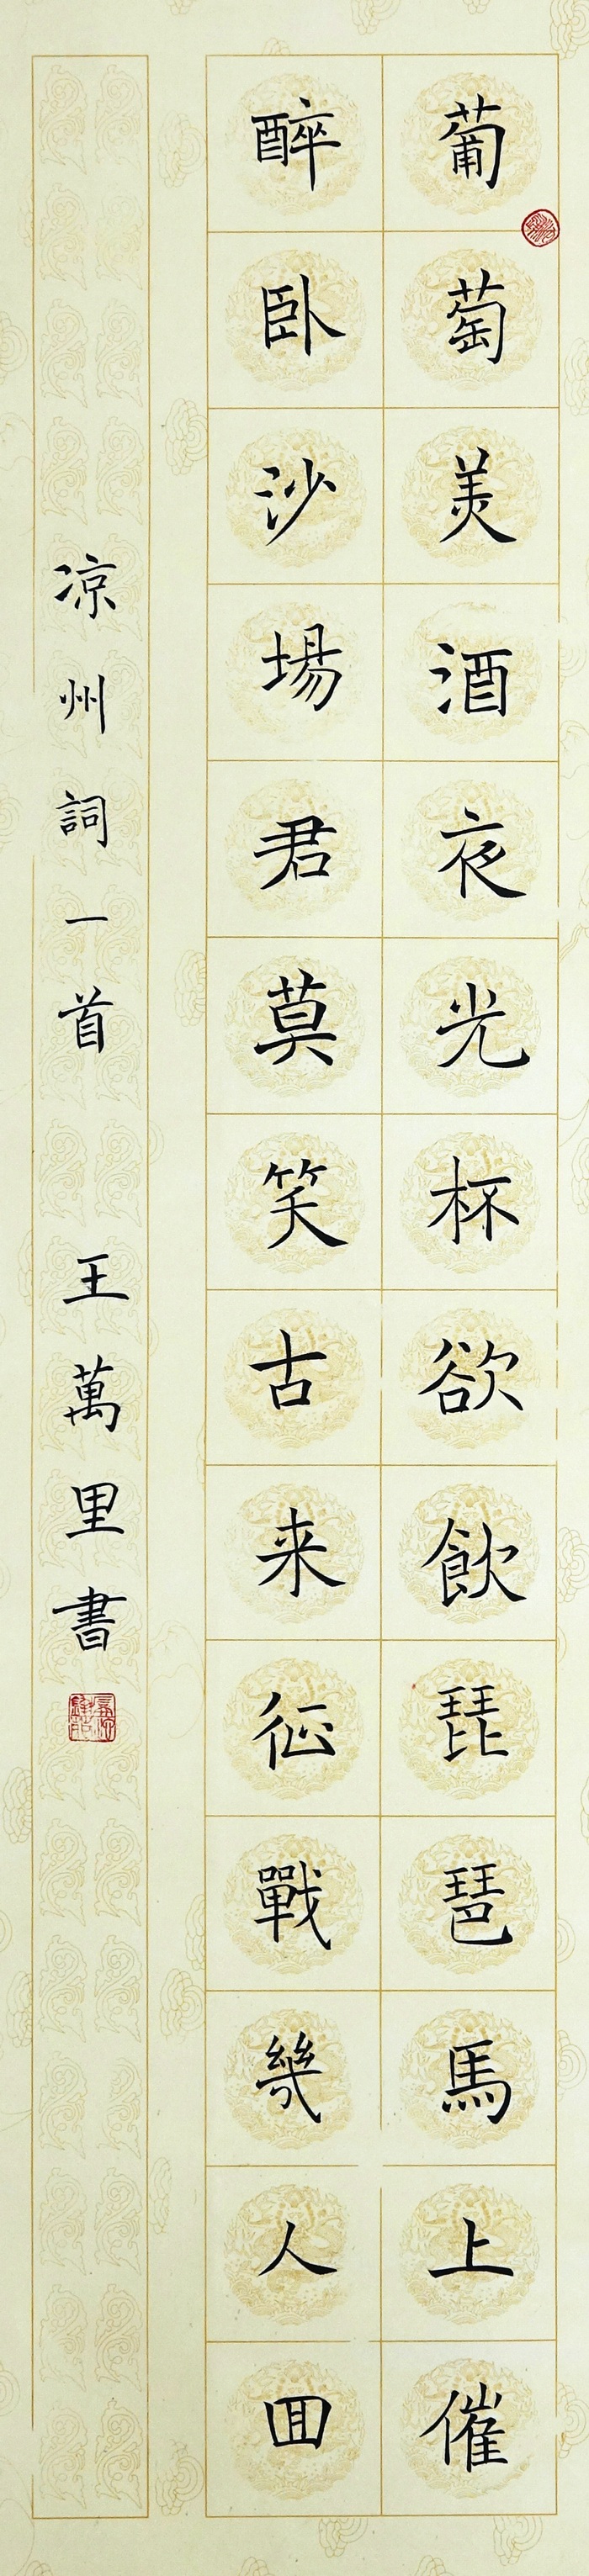 葡萄美酒夜光杯欲飲琵琶馬上催
醉卧沙場君莫笑古来征戰幾人囬
凉州詞一首 王萬里書